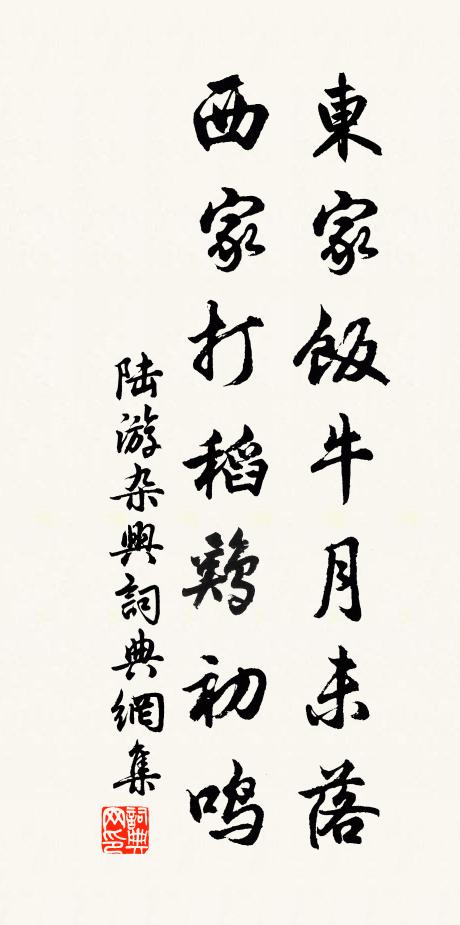 東家飯牛月未落
西家打稻鷄初鳴
陆游杂興詞典網集
詞典网印